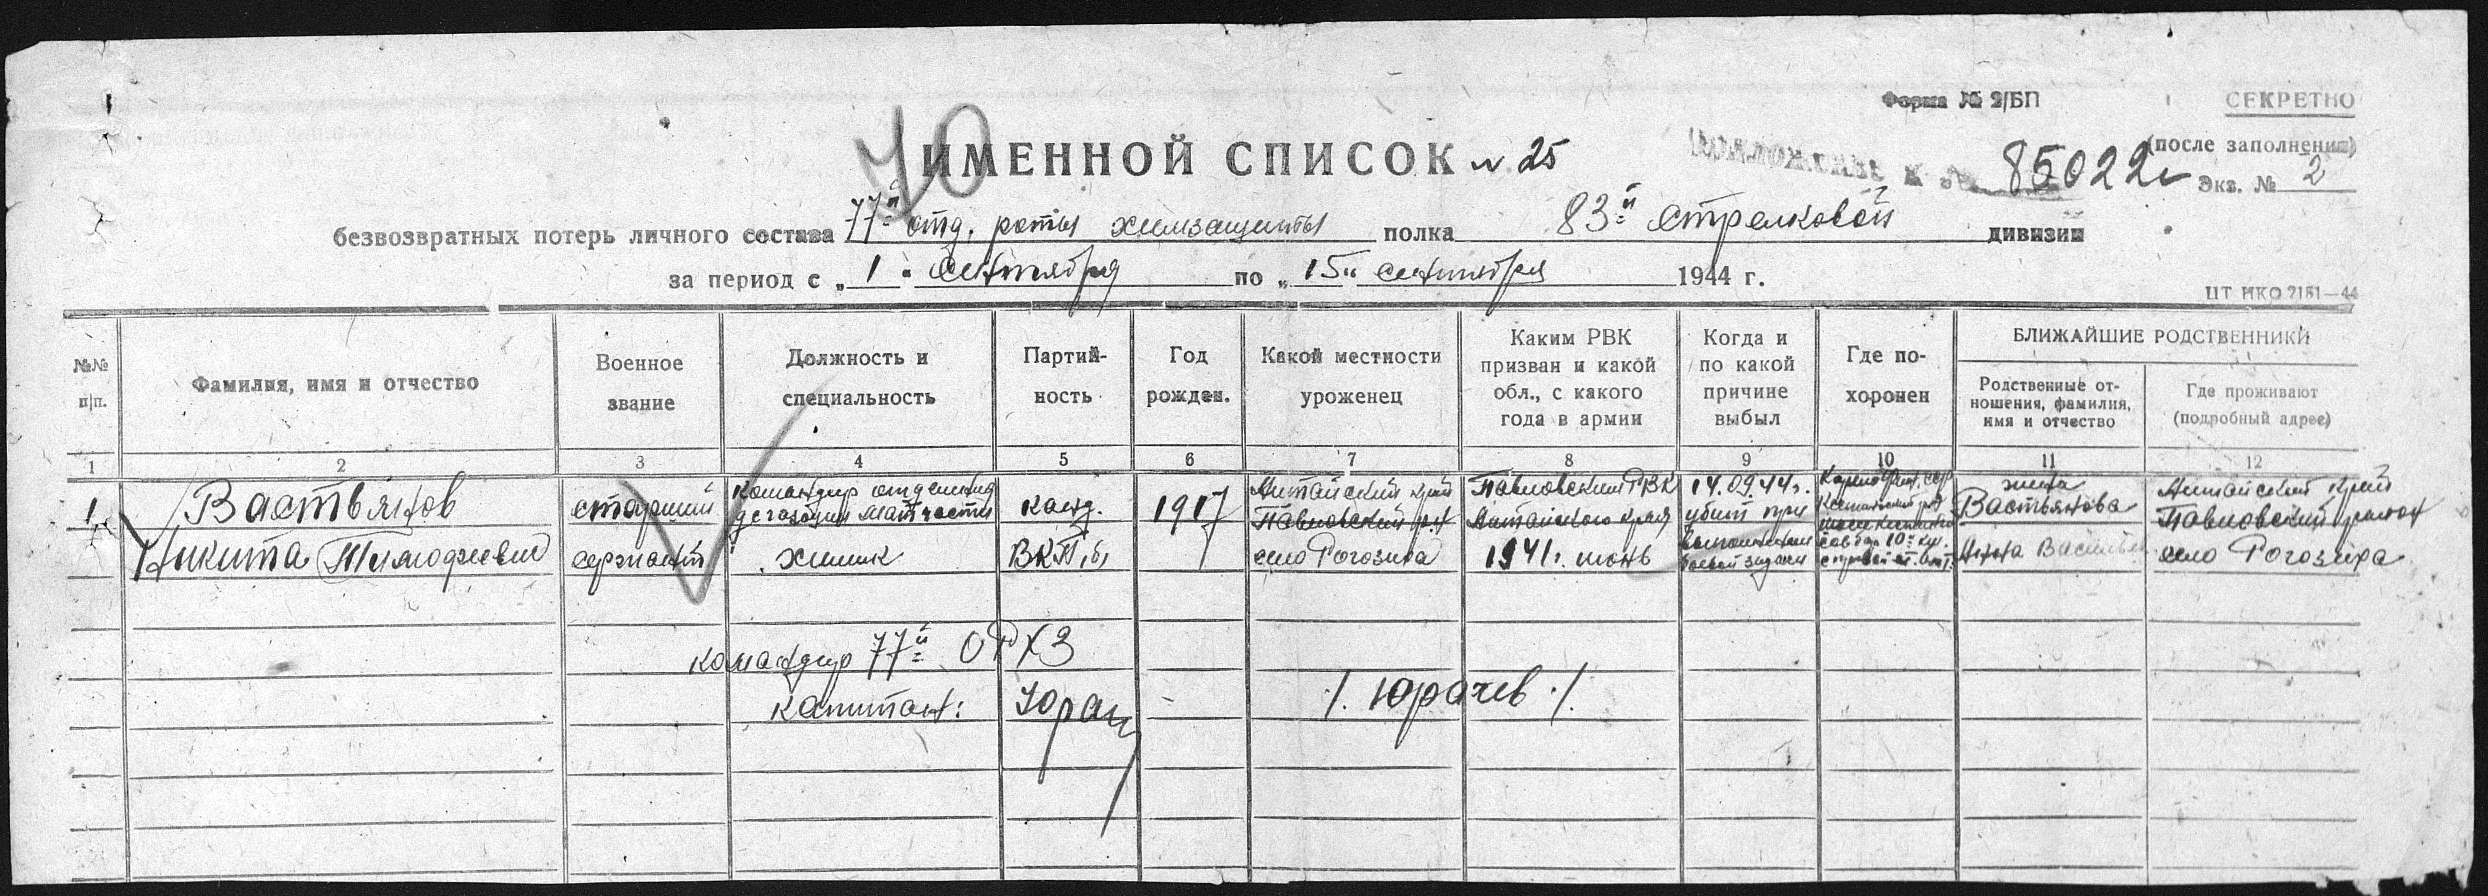 Форма № 2/БП
СЕКРЕТНО
(после заполнения)
70
ИМЕННОЙ СПИСОК № 25
85022с Экз. № 2
безвозвратных потерь личного состава 77й отд. роты химзащиты полка 83й стрелковой дивизии
за период с „1" сентября по „15" сентября 1944 г.
ЦТ НКО 2151—44
№№ п/п.
Фамилия, имя и отчество
Военное звание
Должность и специальность
Партий-
ность
Год рожден.
Какой местности уроженец
Каким РВК призван и какой обл., с какого года в армии
Когда и по какой причине выбыл
Где по-
хоронен
БЛИЖАЙШИЕ РОДСТВЕННИКИ
Родственные от-
ношения, фамилия, имя и отчество
Где проживают (подробный адрес)
1 2 3 4 5 6 7 8 9 10 11 12
1
Вастьянов
Никита Тимофеевич
старший
сержант
командир отделения
дегазации матчасти
химик
канд.
ВКП(б)
1917
Алтайский край
Павловский р-н
село Рогозиха
Павловский РВК
Алтайского края
1941г. июнь
14.09.44г.
убит при
выполнении
боевой задачи
жена
Вастьянова
Алтайский край
Павловский район
село Рогозиха
командир 77й ОРХЗ
капитан:
/. Юрачев ./